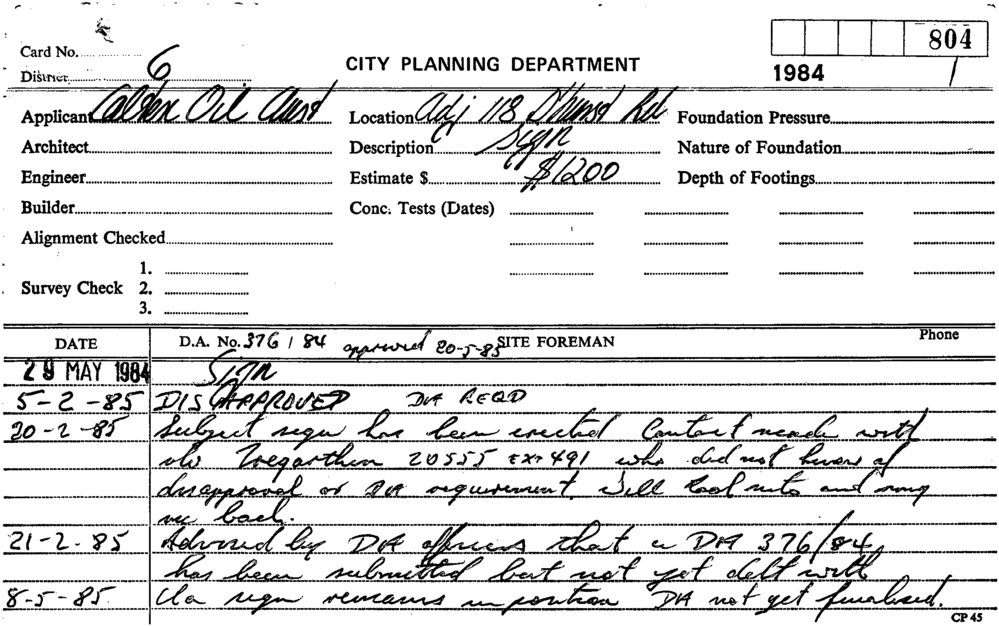 804
Card No.
1984 1
District 6
CITY PLANNING DEPARTMENT
Applicant Caltex Oil Aust Location Adj 118 Foundation Pressure
Architect Description Sign Nature of Foundation
Engineer Estimate $ $1200 Depth of Footings
Builder Conc. Tests (Dates)
Alignment Checked
1.
Survey Check 2.
3.
DATE D.A. No. 376 / 84 approved 20-5-85 SITE FOREMAN Phone
29 MAY 1984 Sign
5-2-85 DISAPPROVED DA REQD
20-2-85 Subject sign has been erected Contact made with
Tregarthen 20555 EXT 491 who did not know of
disapproval or DA requirement. Will look into and ring
me back.
21-2-85 Advised by DA officers that a DA 376/84
has been submitted but not yet delt with
8-5-85 sign remains in position DA not yet finalised.
CP 45